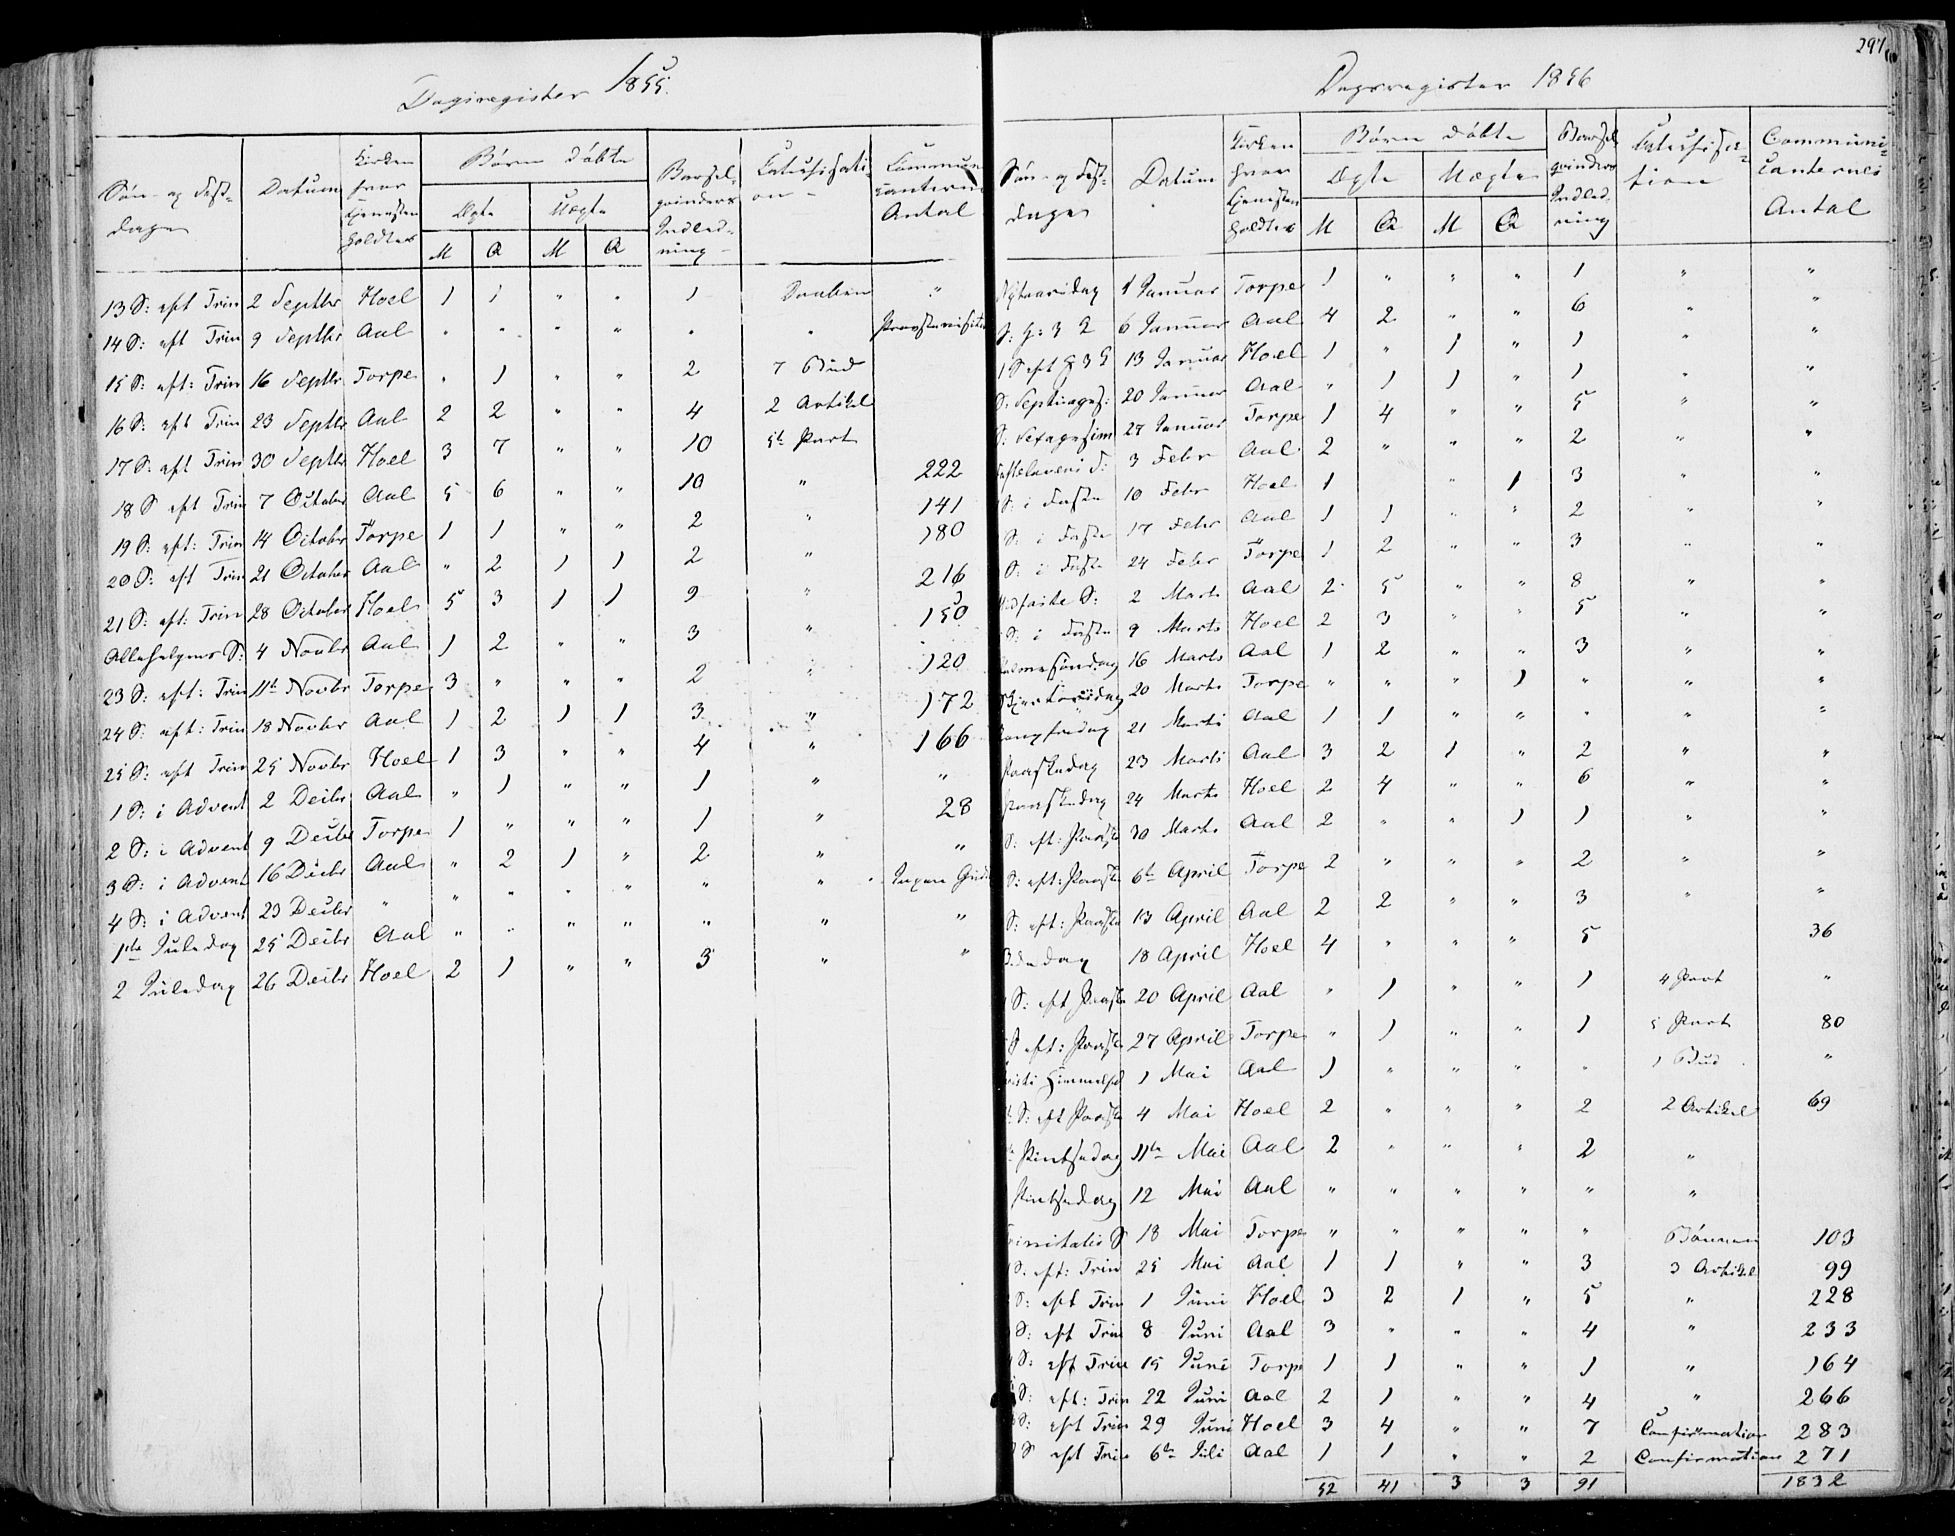 Dagsregister 1855.
Søn- og Fest-dage | Datum | Kirken hvor Tjenesten holdtes | Børn døbte | Barsel-qvinders Indled-ning | Catechisati-on | Commun-canternes Antal
Ægte | Uægte
M | Q | M | Q
13 S: eft Trin | 2 Septbr | Hoel | 1 | 1 | " | " | 1 | Daaben | "
14 S: eft Trin | 9 Septbr | Aal | " | " | " | " | " | " | Provstevisitats
15 S: eft: Trin | 16 Septbr | Torpe | " | 1 | " | " | 2 | 7 Bud
16 S: eft Trin | 23 Septbr | Aal | 2 | 2 | " | " | 4 | 2 Artikel
17 S: eft Trin | 30 Septbr | Hoel | 3 | 7 | " | " | 10 | 5te Part | 222
18 S eft Trin | 7 October | Aal | 5 | 6 | " | " | 10 | " | 141
19 S: eft: Trin | 14 October | Torpe | 1 | 1 | " | " | 2 | " | 180
20 S: eft Trin | 21 October | Aal | " | 2 | 1 | 1 | 2 | " | 216
21 S: eft: Trin | 28 October | Hoel | 5 | 3 | 1 | 1 | 9 | " | 150
Allehelgens S: | 4 Novbr | Aal | 1 | 2 | " | " | 3 | " | 120
23 S: eft: Trin | 11te Novbr | Torpe | 3 | " | " | " | 2 | " | 172
24 S: eft: Trin | 18 Novbr | Aal | 1 | 2 | 1 | 1 | 3 | " | 166
25 S: eft Trin | 25 Novbr | Hoel | 1 | 3 | " | " | 4 | " | "
1 S: i Advent | 2 Decbr | Aal | " | 1 | " | " | 1 | " | 28
2 S: i Advent | 9 Decbr | Torpe | 1 | " | " | " | 1 | " | "
3 S: i Advent | 16 Decbr | Aal | " | 2 | 1 | " | 2 | " | Ingen
4 S: i Advent | 23 Decbr | " | " | " | " | " | " | " | "
1ste Juledag | 25 Decbr | Aal | " | " | " | " | " | " | "
2 Juledag | 26 Decbr | Hoel | 2 | 1 | " | " | 3 | "
297
Dagsregister 1856
Søn- og Fest-dage | Datum | Kirken hvor Tjenesten holdtes | Børn døbte | Barsel-qvinders Indled-ning | Catechisa-tion | Communi-canternes Antal
Ægte | Uægte
M | Q | M | Q
Nytaarsdag | 1 Januar | Torpe | 1 | " | " | " | 1 | " | "
S: H: 3 K | 6 Januar | Aal | 4 | 2 | " | " | 6 | " | "
1 S eft H 3 K | 13 Januar | Hoel | 1 | " | 1 | " | 1 | " | "
S: Septuages: | 20 Januar | Aal | " | 1 | 1 | " | 1 | " | "
S: Sexagesim | 27 Januar | Torpe | 1 | 4 | " | " | 5 | " | "
Fastelavens S: | 3 Febr | Aal | 2 | " | " | " | 2 | " | "
S: i Faste | 10 Febr | Hoel | 1 | | " | 1 | 3 | " | "
S: i Faste | 17 Febr | Aal | 1 | 1 | " | " | 2 | " | "
S: i Faste | 24 Febr | Torpe | 1 | 2 | " | " | 3 | " | "
Midfaste S: | 2 Marts | Aal | 2 | 5 | " | " | 8 | " | "
S: i Faste | 9 Marts | Hoel | 2 | 3 | " | " | 5 | " | "
Palmesøndag | 16 Marts | Aal | 1 | 2 | " | " | 3 | " | "
Skjærtorsdag | 20 Marts | Torpe | " | " | " | 1 | " | " | "
Langfredag | 21 Marts | Aal | 1 | 1 | " | " | " | " | "
Paaskedag | 23 Marts | Aal | 3 | 2 | 1 | " | 2 | " | "
Paaskedag | 24 Marts | Hoel | 2 | 4 | " | " | 6 | " | "
S: eft: Paaske | 30 Marts | Aal | 2 | " | " | 1 | 1 | " | "
S: eft: Paaske | 6te April | Torpe | 2 | " | " | " | 2 | " | "
S: eft: Paaske | 13 April | Aal | 2 | 2 | " | " | 3 | " | "
Bededag | 18 April | Hoel | 4 | " | " | " | 5 | | 36
S: eft Paaske | 20 April | Aal | " | 1 | " | " | 1 | 4 Part | "
S eft: Paaske | 27 April | Torpe | " | 1 | " | " | 1 | 5 Part | 80
Christi Himmelf | 1 Mai | Aal | 1 | " | " | " | " | 1 Bud | "
S: eft Paaske | 4 Mai | Hoel | 2 | " | " | " | 2 | 2 Artikel | 69
Pintsedag | 11te Mai | Aal | 2 | " | " | " | 2 | "
Pintsedag | 12 Mai | Aal | " | " | " | " | " | "
Trinitatis S | 18 Mai | Torpe | " | " | " | " | " | Bønnen | 103
S: eft: Trin | 25 Mai | Aal | 1 | 1 | " | " | 3 | 3 Artikel | 99
S: eft Trin | 1 Juni | Hoel | 3 | 2 | 1 | " | 5 | " | 228
S: eft Trin | 8 Juni | Aal | 3 | " | " | " | 4 | " | 233
S: eft Trin | 15 Juni | Torpe | 1 | 1 | " | " | 1 | " | 164
S: eft: Trin | 22 Juni | Aal | 2 | 1 | " | " | 4 | " | 266
S: eft Trin | 29 Juni | Hoel | 3 | 4 | " | " | 7 | Confirmation | 283
S eft Trin | 6te Juli | Aal | 1 | 1 | " | " | 2 | Confirmation | 271
52 | 41 | 3 | 3 | 91 | | 1832